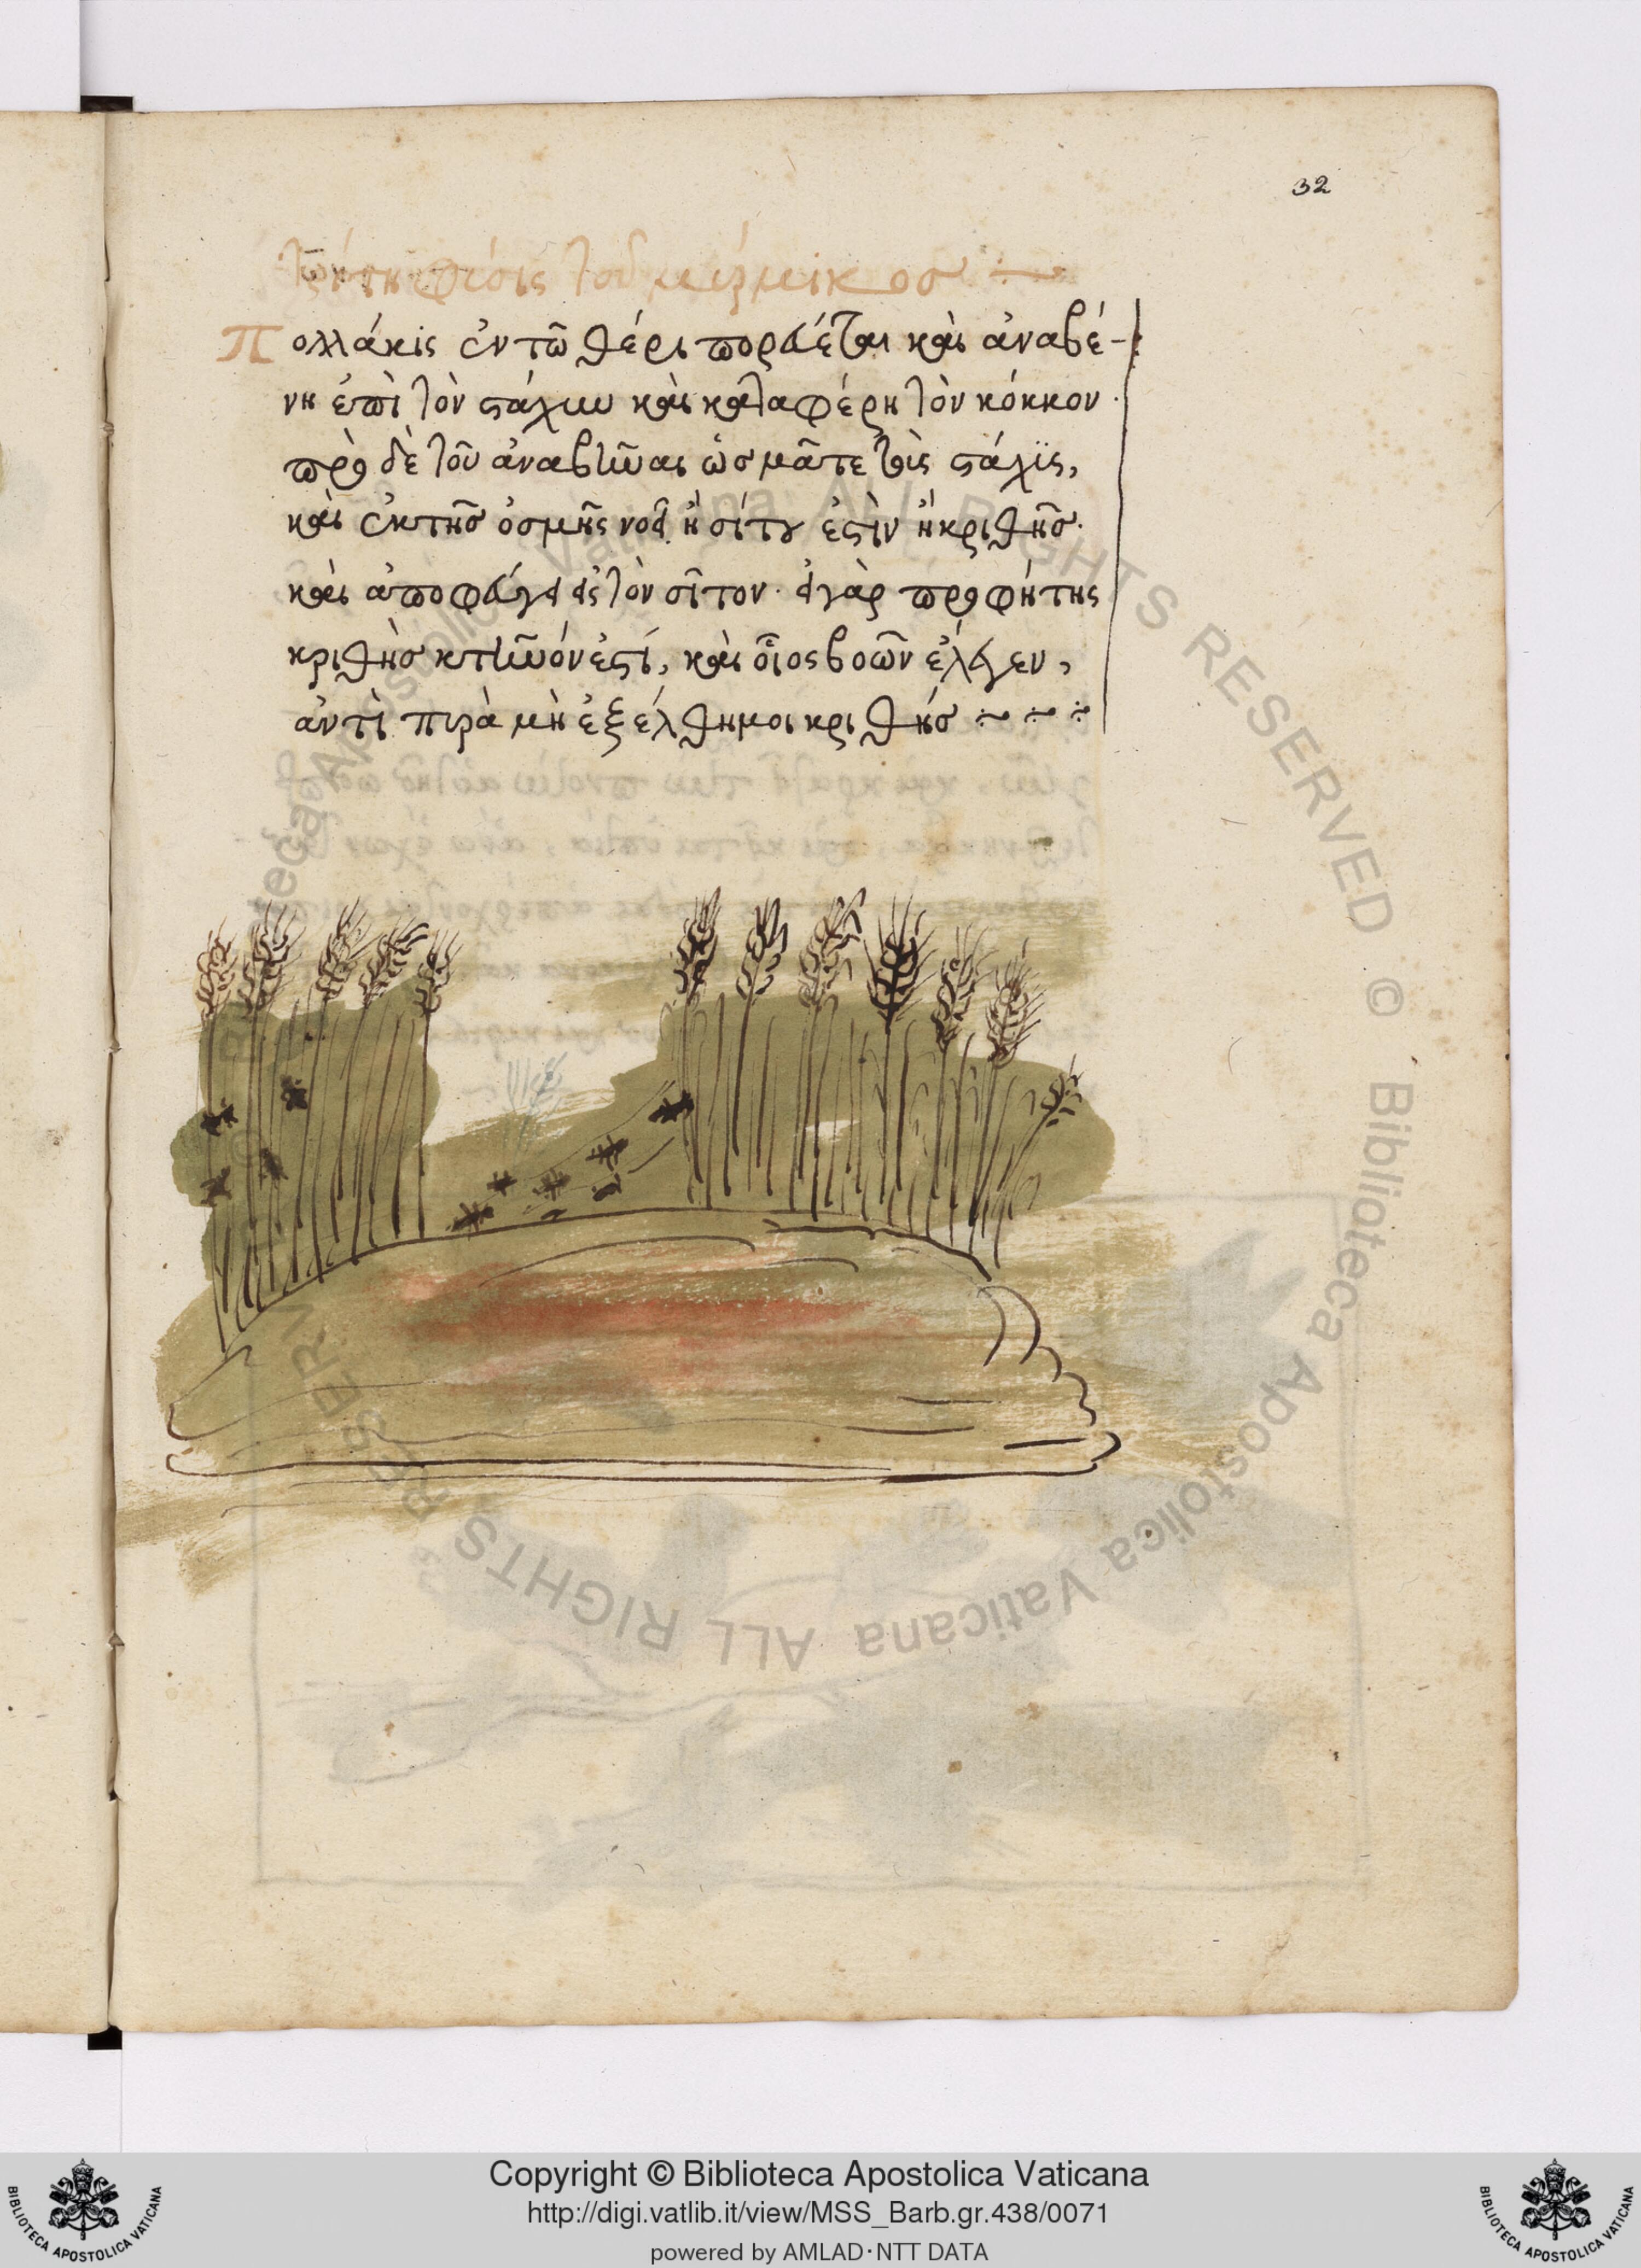 32
Τρήτη φύσις τοῦ μύρμικος
Πολλάκις ἐν τῶ θέρι πορεύεται καὶ ἀναβέ-
νη ἐπὶ τὸν στάχυν καὶ καταφέρη τὸν κόκκον·
πρὸ δὲ τοῦ ἀναβῆναι ὠσμᾶτε τὶς στάχϊς,
καὶ ἐκ τῆς ὀσμῆς νοεῖ ἢ σίτου ἐστὶν ἢ κριθῆς·
καὶ ἀποφεύγει εἰς τὸν σῖτον· εἰ γὰρ προφήτης
κριθὴς κτηνόν ἐστί, καὶ οἷος βοῶν ἔλεγεν,
ἀντὶ πυρὰ μὴ ἐξέλθη μοι κριθής
Biblioteca Apostolica Vaticana ALL RIGHTS RESERVED © Biblioteca Apostolica Vaticana ALL RIGHTS RESERVED
Copyright © Biblioteca Apostolica Vaticana
http://digi.vatlib.it/view/MSS_Barb.gr.438/0071
powered by AMLAD·NTT DATA
BIBLIOTECA APOSTOLICA VATICANA
BIBLIOTECA APOSTOLICA VATICANA